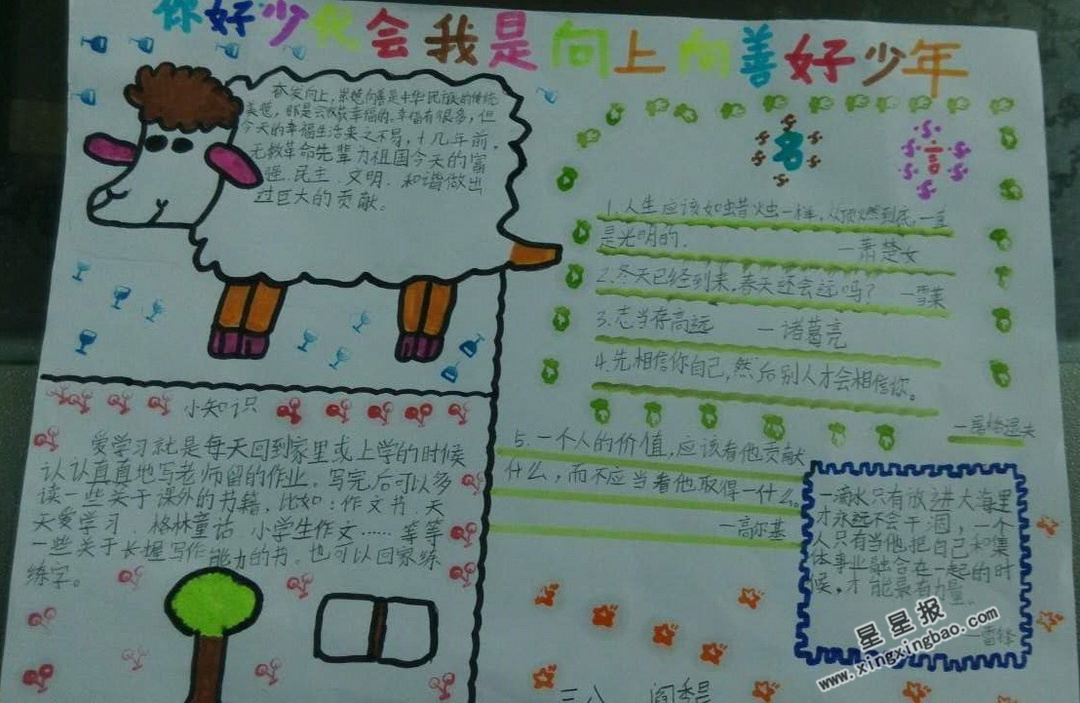 你好少化会我是向上向善好少年
奋发向上,崇德向善是中华民族的传统
美德,那是云收获幸福的。幸福有很多,但
今天的幸福生活来之不易,十几年前,
无数革命先辈为祖国今天的富
强、民主、文明、和谐做出
过巨大的贡献。
名言
1.人生应该如蜡烛一样,从顶燃到底,一直
是光明的.
—萧楚女
2.冬天已经到来,春天还会远吗? —雪莱
3.志当存高远 —诸葛亮
4.先相信你自己,然后别人才会相信你。
5.一个人的价值,应该看他贡献
什么,而不应当看他取得一什么。
—高尔基
小知识
爱学习就是每天回到家里或上学的时候
认认真真地写老师留的作业。写完后可以多
读一些关于课外的书籍,比如:作文书、天
天爱学习、格林童话、小学生作文……等等
一些关于长握写作能力的书。也可以回家练
练字。
一滴水只有放进大海里
才永远不会干涸,一个
人只有当他把自己和集
体事业融合在一起的时
候,才能最有力量。
—雷锋
三八
星星报
www.xingxingbao.com